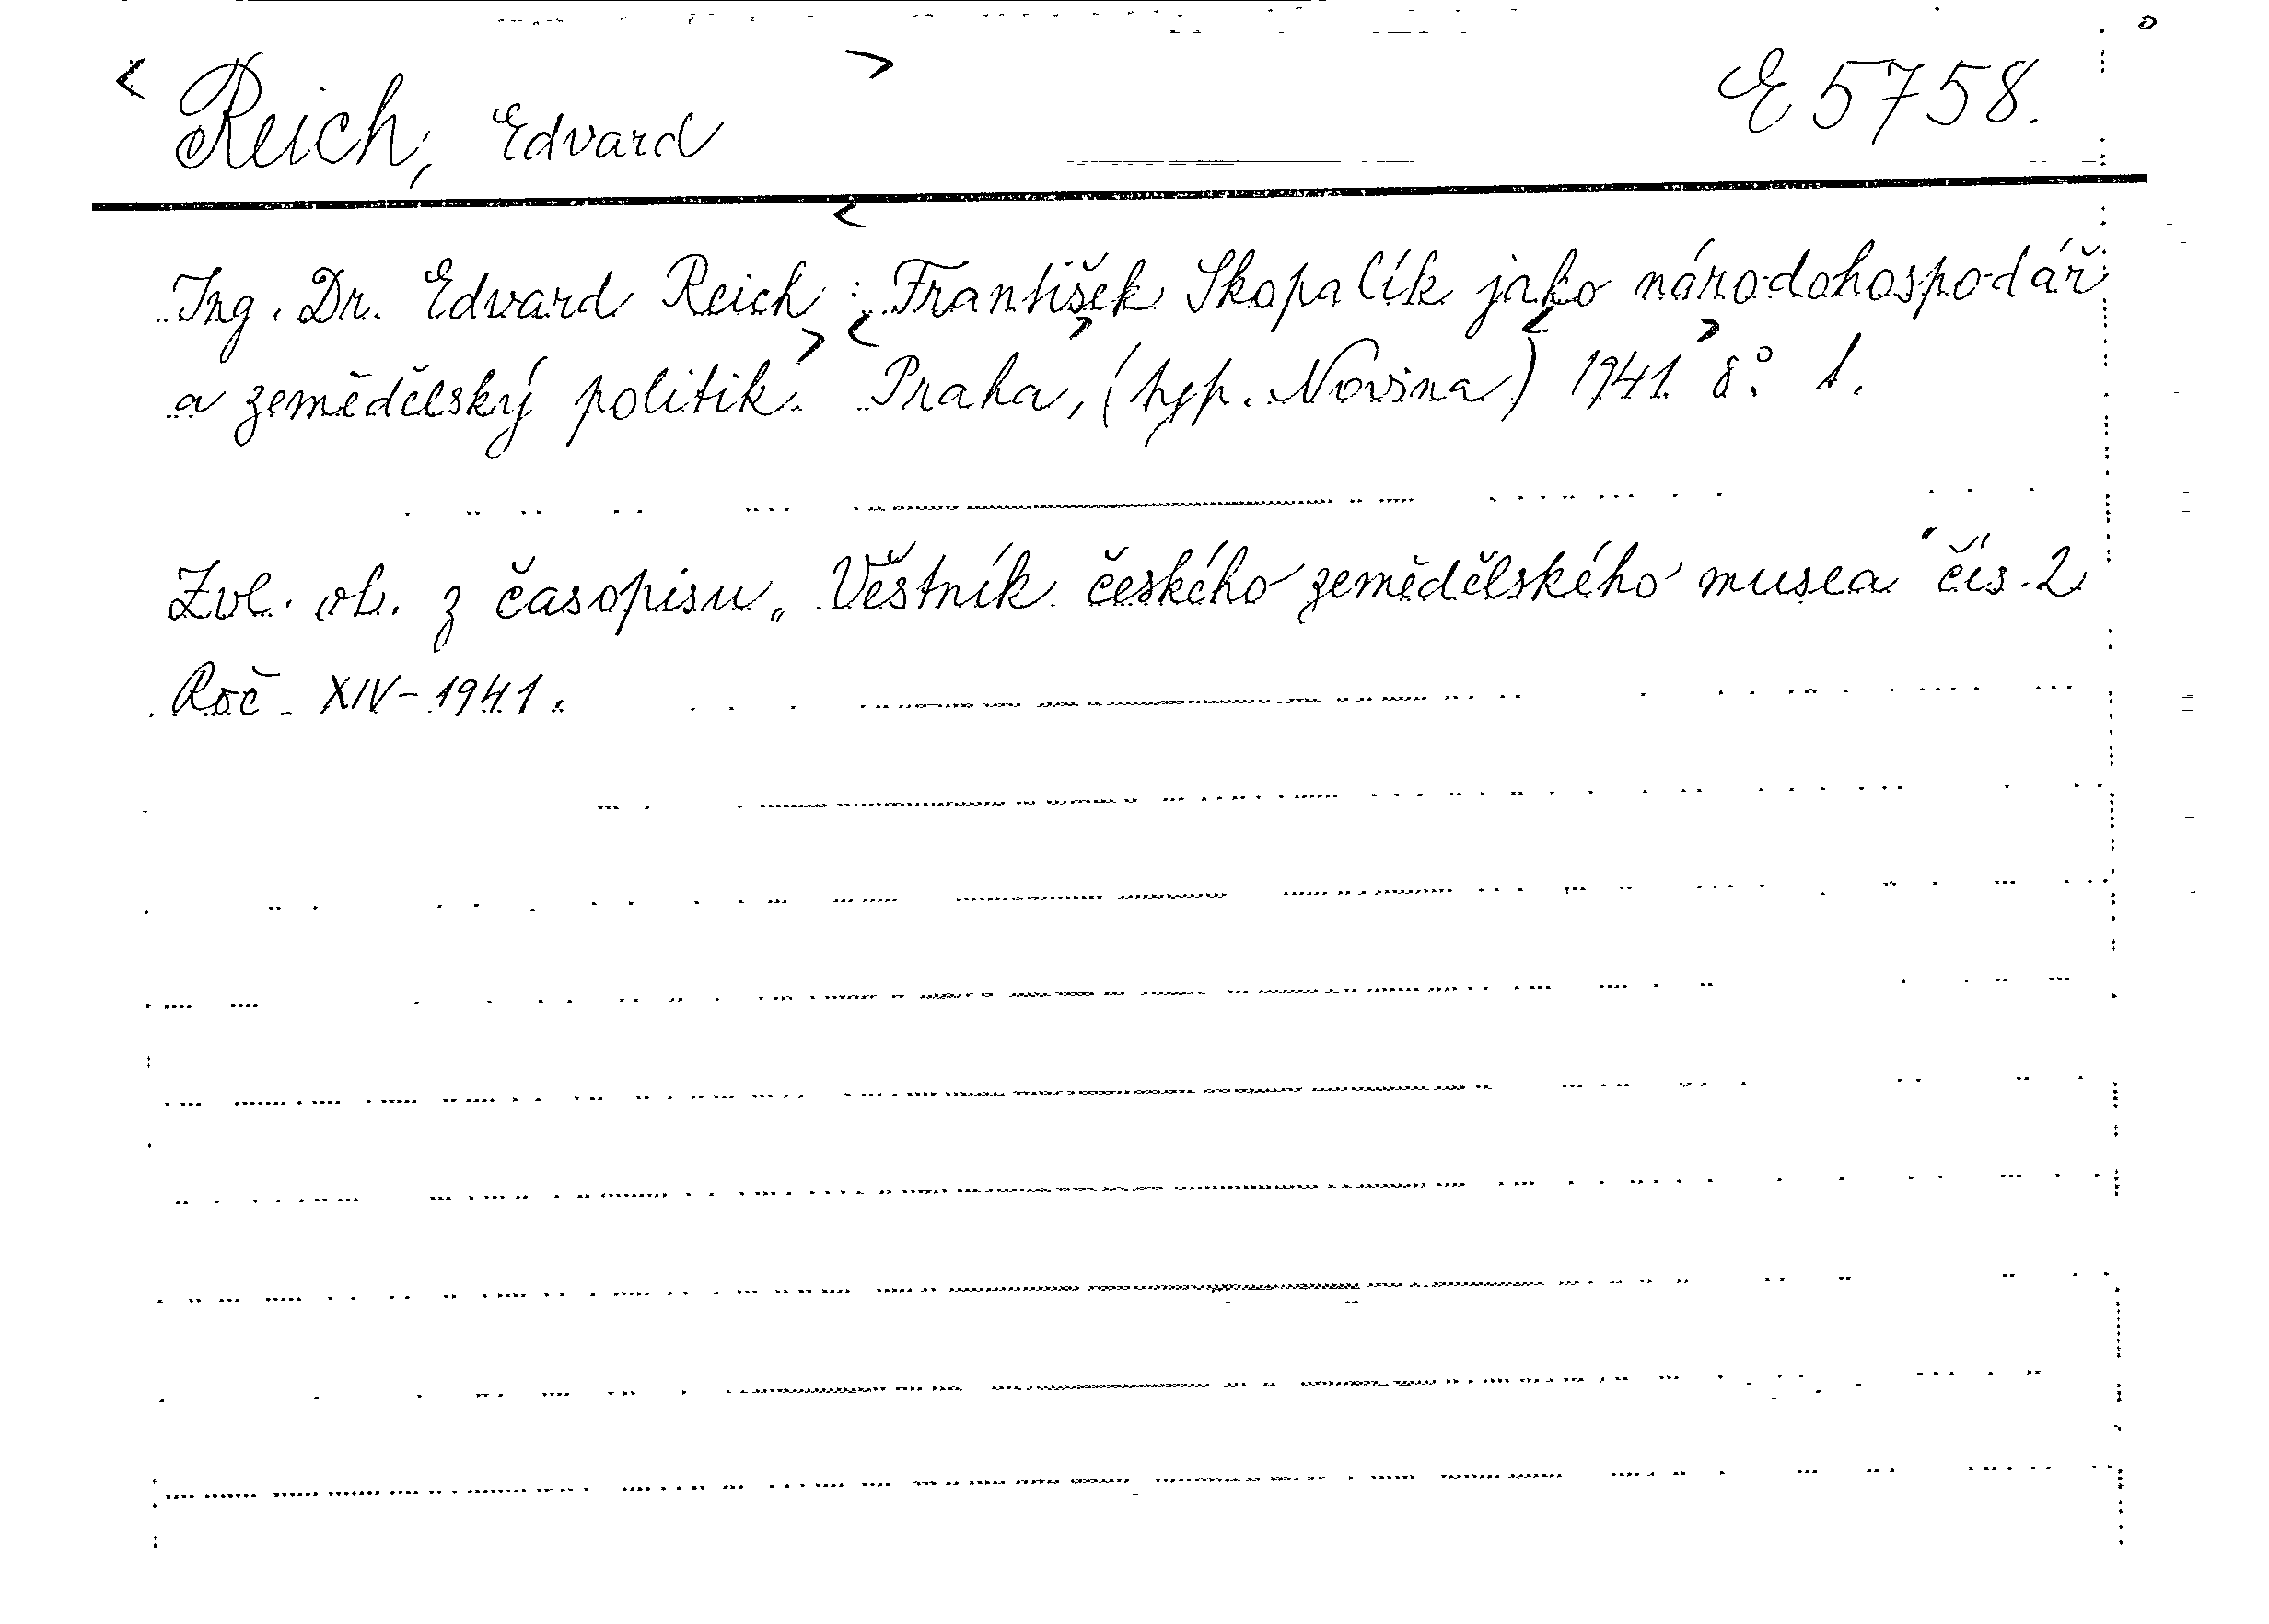 Reich, Edvard E 5758.
Ing. Dr. Edvard Reich: František Skopalík jako národohospodář
a zemědělský politik. Praha, (typ. Novina) 1941. 8° 1.
Zvl. ot. z časopisu „Věstník českého zemědělského musea" čís. 2
Roč. XIV - 1941.